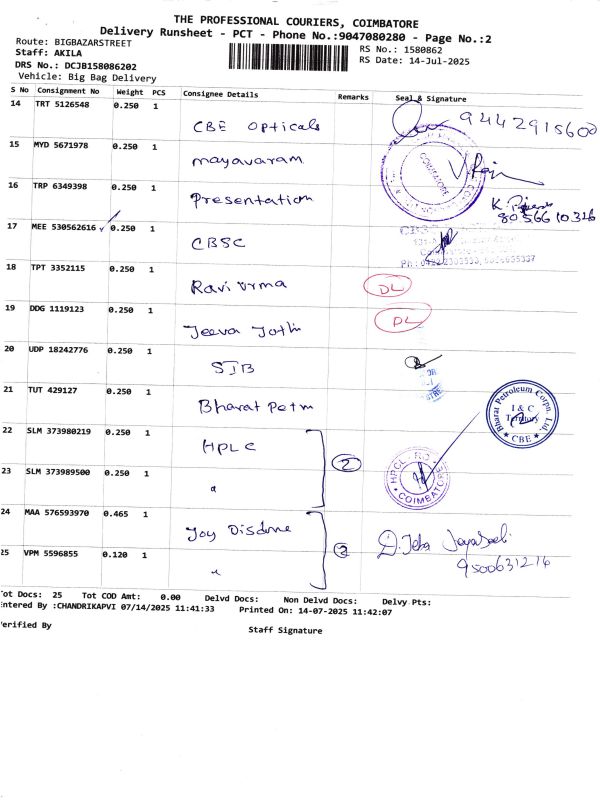 THE PROFESSIONAL COURIERS, COIMBATORE
Delivery Runsheet - PCT - Phone No.:9047080280 - Page No.:2
Route: BIGBAZARSTREET
RS No.: 1580862
Staff: AKILA
RS Date: 14-Jul-2025
DRS No.: DCJB158086202
Vehicle: Big Bag Delivery
S No Consignment No Weight PCS Consignee Details Remarks Seal & Signature
14 TRT 5126548 0.250 1 CBE Opticals 9442915600
15 MYD 5671978 0.250 1 mayavaram
COIMBATORE
16 TRP 6349398 0.250 1 Presentation
8056610326
17 MEE 530562616 0.250 1 CBSC
18 TPT 3352115 0.250 1 Ravi Vrma DL
19 DDG 1119123 0.250 1 Jeeva Jothi DL
20 UDP 18242776 0.250 1 SIB
21 TUT 429127 0.250 1 Bharat Petm
Bharat Petroleum Corpn. Ltd.
I & C
Territory
CBE
22 SLM 373980219 0.250 1 HPLC 2
HPCL - RO
COIMBATORE
23 SLM 373989500 0.250 1 "
24 MAA 576593970 0.465 1 Joy 2
D. Jeba
9500631214
25 VPM 5596855 0.120 1 "
Tot Docs: 25 Tot COD Amt: 0.00 Delvd Docs: Non Delvd Docs: Delvy Pts:
Entered By :CHANDRIKAPVI 07/14/2025 11:41:33 Printed On: 14-07-2025 11:42:07
Verified By
Staff Signature